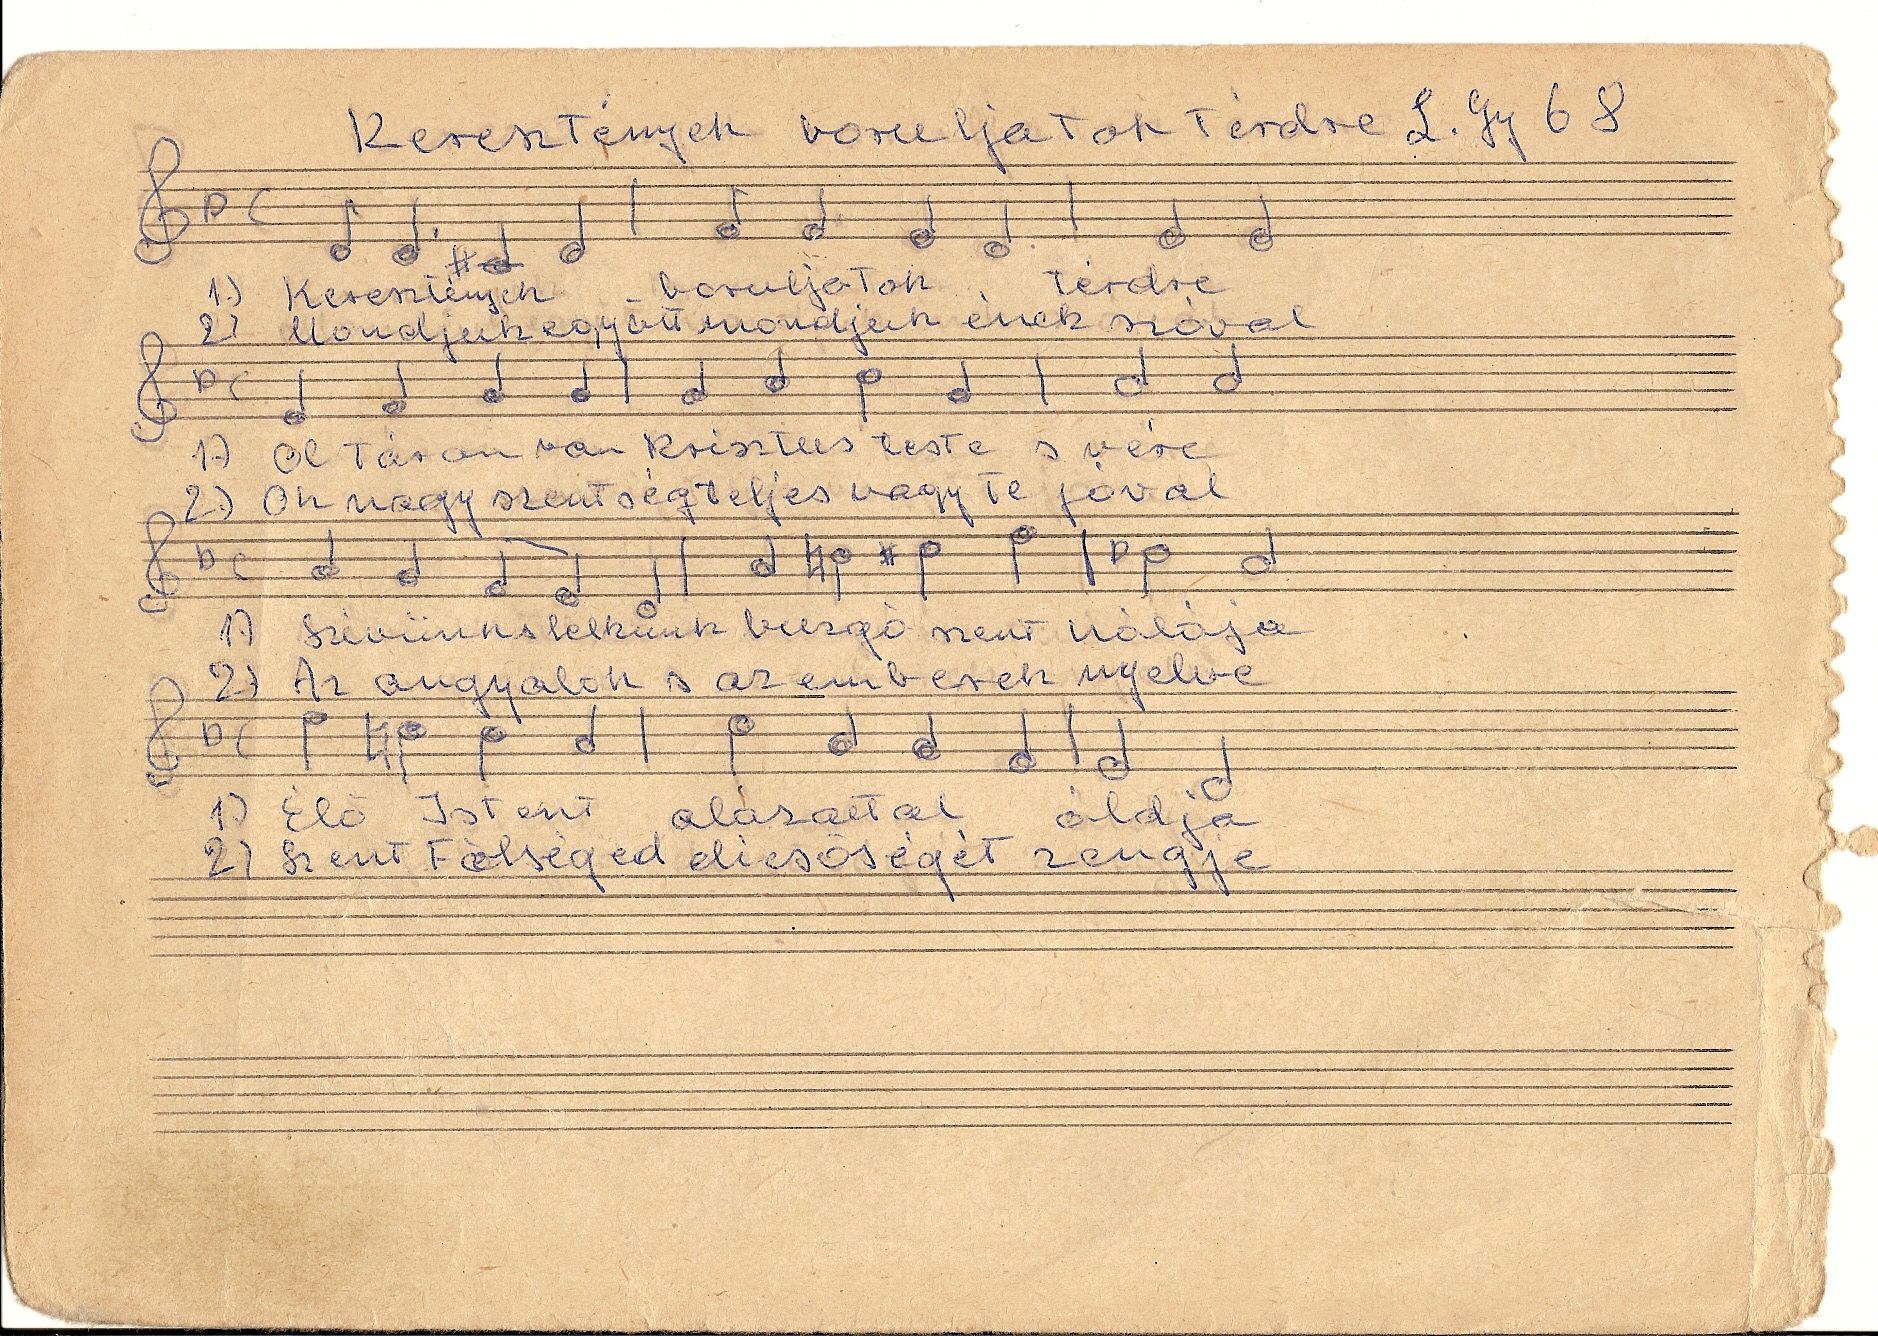 Keresztények boruljatok térdre L. Gy 68
1) Keresztények boruljatok térdre
2) Mondjuk együtt mondjuk ének szóval
1) Oltáron van Krisztus teste s vére
2) Oh nagy szentség teljes vagy te jóval
1) Szivünk s lelkünk buzgó szent
2) Az angyalok s az emberek nyelve
1) Élő Istent alázattal áldja
2) Szent Fölséged dicsőségét zengje